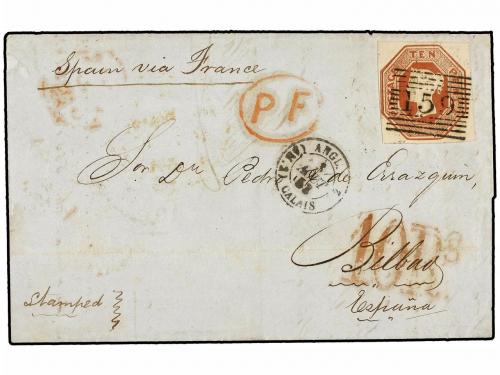 Spain via France
TEN
159
PF
ANGL.
CALAIS
Sor. Dn. Pedro de Errazquin,
Bilbao
España
Stamped